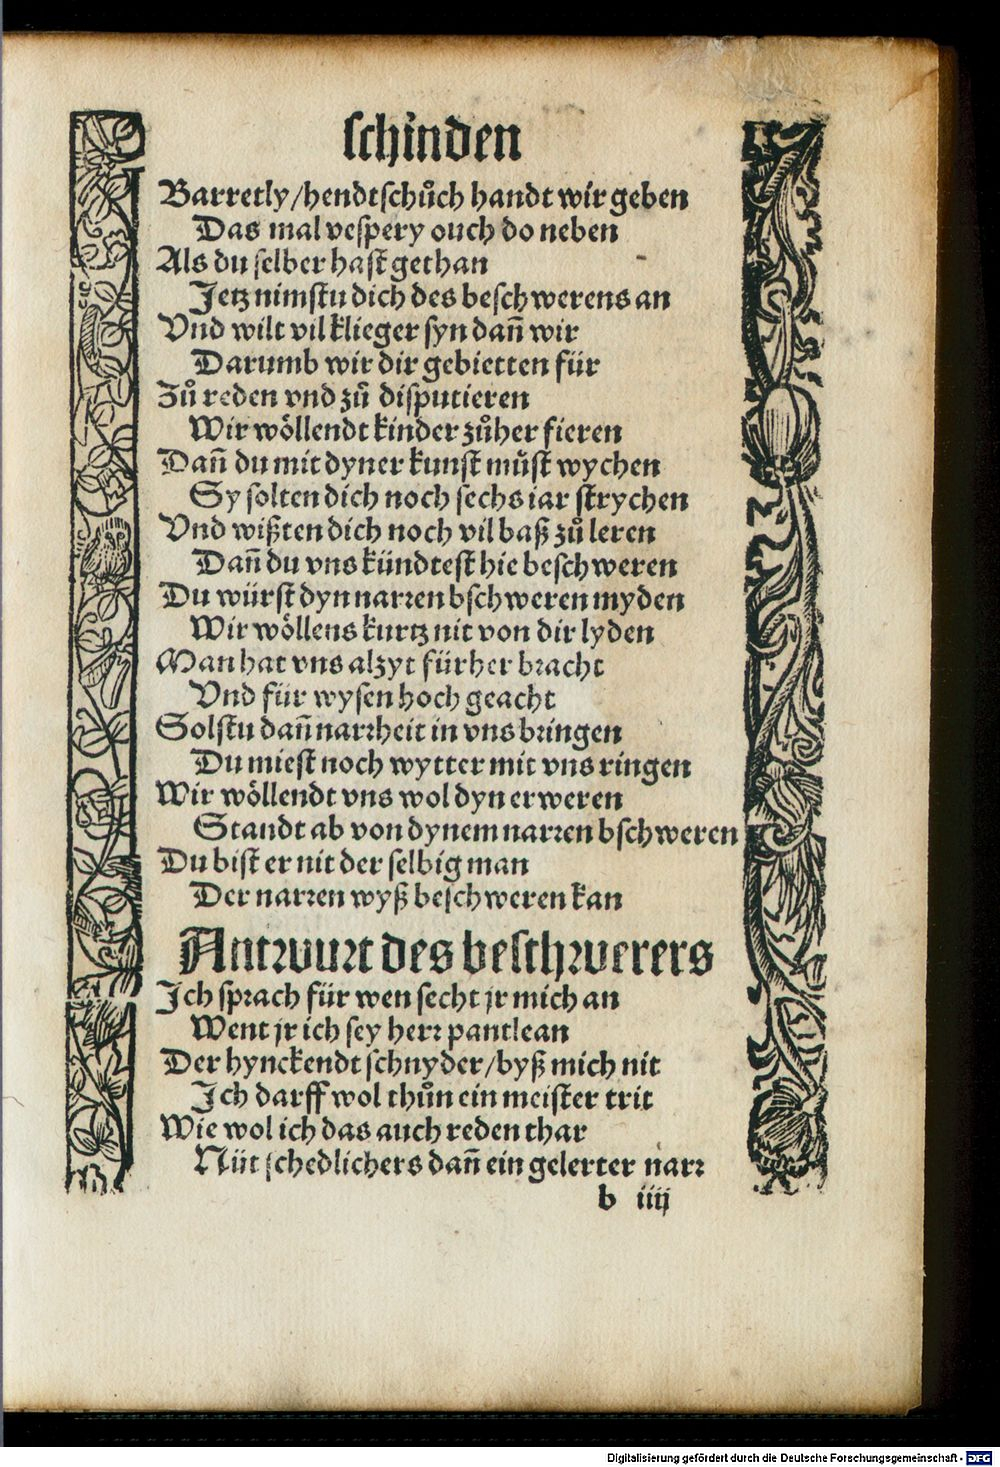 schinden
Barretly/hendtschůch handt wir geben
Das mal vespery ouch do neben
Als du selber hast gethan
Jetz nimstu dich des beschwerens an
Vnd wilt vil klieger syn dañ wir
Darumb wir dir gebietten für
Zů reden vnd zů disputieren
Wir wöllendt kinder zůher fieren
Dañ du mit dyner kunst můst wychen
Sy solten dich noch sechs iar strychen
Vnd wißten dich noch vil baß zů leren
Dañ du vns kündtest hie beschweren
Du würst dyn narren bschweren myden
Wir wöllens kurtz nit von dir lyden
Man hat vns alzyt fürher bracht
Vnd für wysen hoch geacht
Solstu dañ narrheit in vns bringen
Du miest noch wytter mit vns ringen
Wir wöllendt vns wol dyn erweren
Standt ab von dynem narren bschweren
Du bist er nit der selbig man
Der narren wyß beschweren kan
Antwurt des beschwerers
Ich sprach für wen secht jr mich an
Went jr ich sey herr pantlean
Der hynckendt schnyder/byß mich nit
Ich darff wol thůn ein meister trit
Wie wol ich das auch reden thar
Nüt schedlichers dañ ein gelerter narr
b iiij
Digitalisierung gefördert durch die Deutsche Forschungsgemeinschaft - DFG